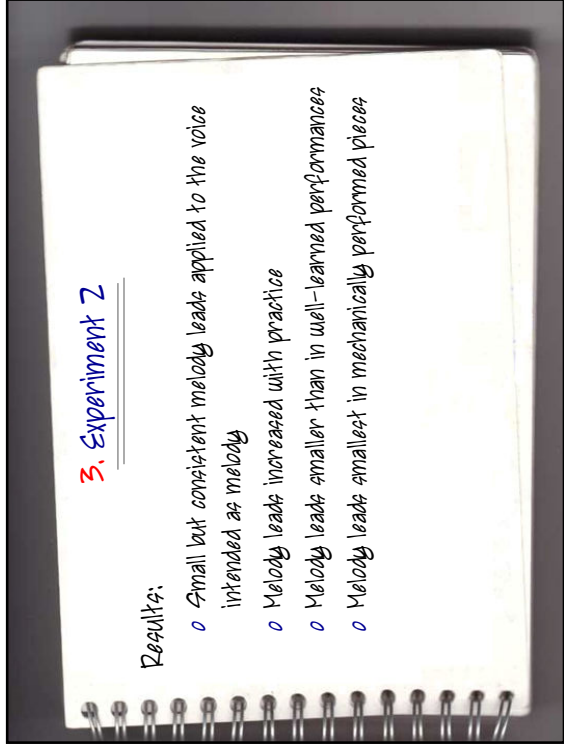 3. Experiment 2
Results:
o Small but consistent melody leads applied to the voice
intended as melody
o Melody leads increased with practice
o Melody leads smaller than in well-learned performances
o Melody leads smallest in mechanically performed pieces